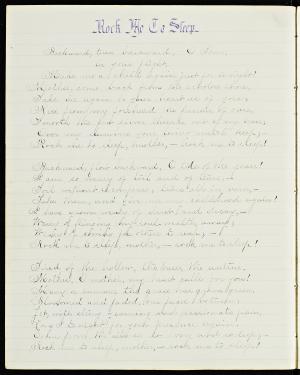 Rock Me To Sleep.
Backward, turn backward, O Time,
in your flight,
Make me a child again just for to-night!
Mother, come back from the echoless shore,
Take me again to your heart as of yore,
Kiss from my forehead the furrows of care,
Smooth the few silver threads out of my hair,
Over my slumbers your loving watch keep;—
Rock me to sleep, mother, — rock me to sleep!
Backward, flow backward, O tide of the years!
I am so weary of toil and of tears,—
Toil without recompense, tears all in vain,—
Take them, and give me my childhood again!
I have grown weary of dust and decay,—
Weary of flinging my soul-wealth away;
Weary of sowing for others to reap;—
Rock me to sleep, mother, — rock me to sleep!
Tired of the hollow, the base, the untrue,
Mother, O mother, my heart calls for you!
Many a summer the grass has grown green,
Blossomed and faded, our faces between,
Yet with strong yearning and passionate pain,
Long I to-night for your presence again.
Come from the silence so long and so deep;—
Rock me to sleep, mother, — rock me to sleep!